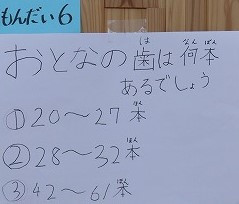 もんだい6
おとなの歯は何本
あるでしょう
①20～27本
②28～32本
③42～61本